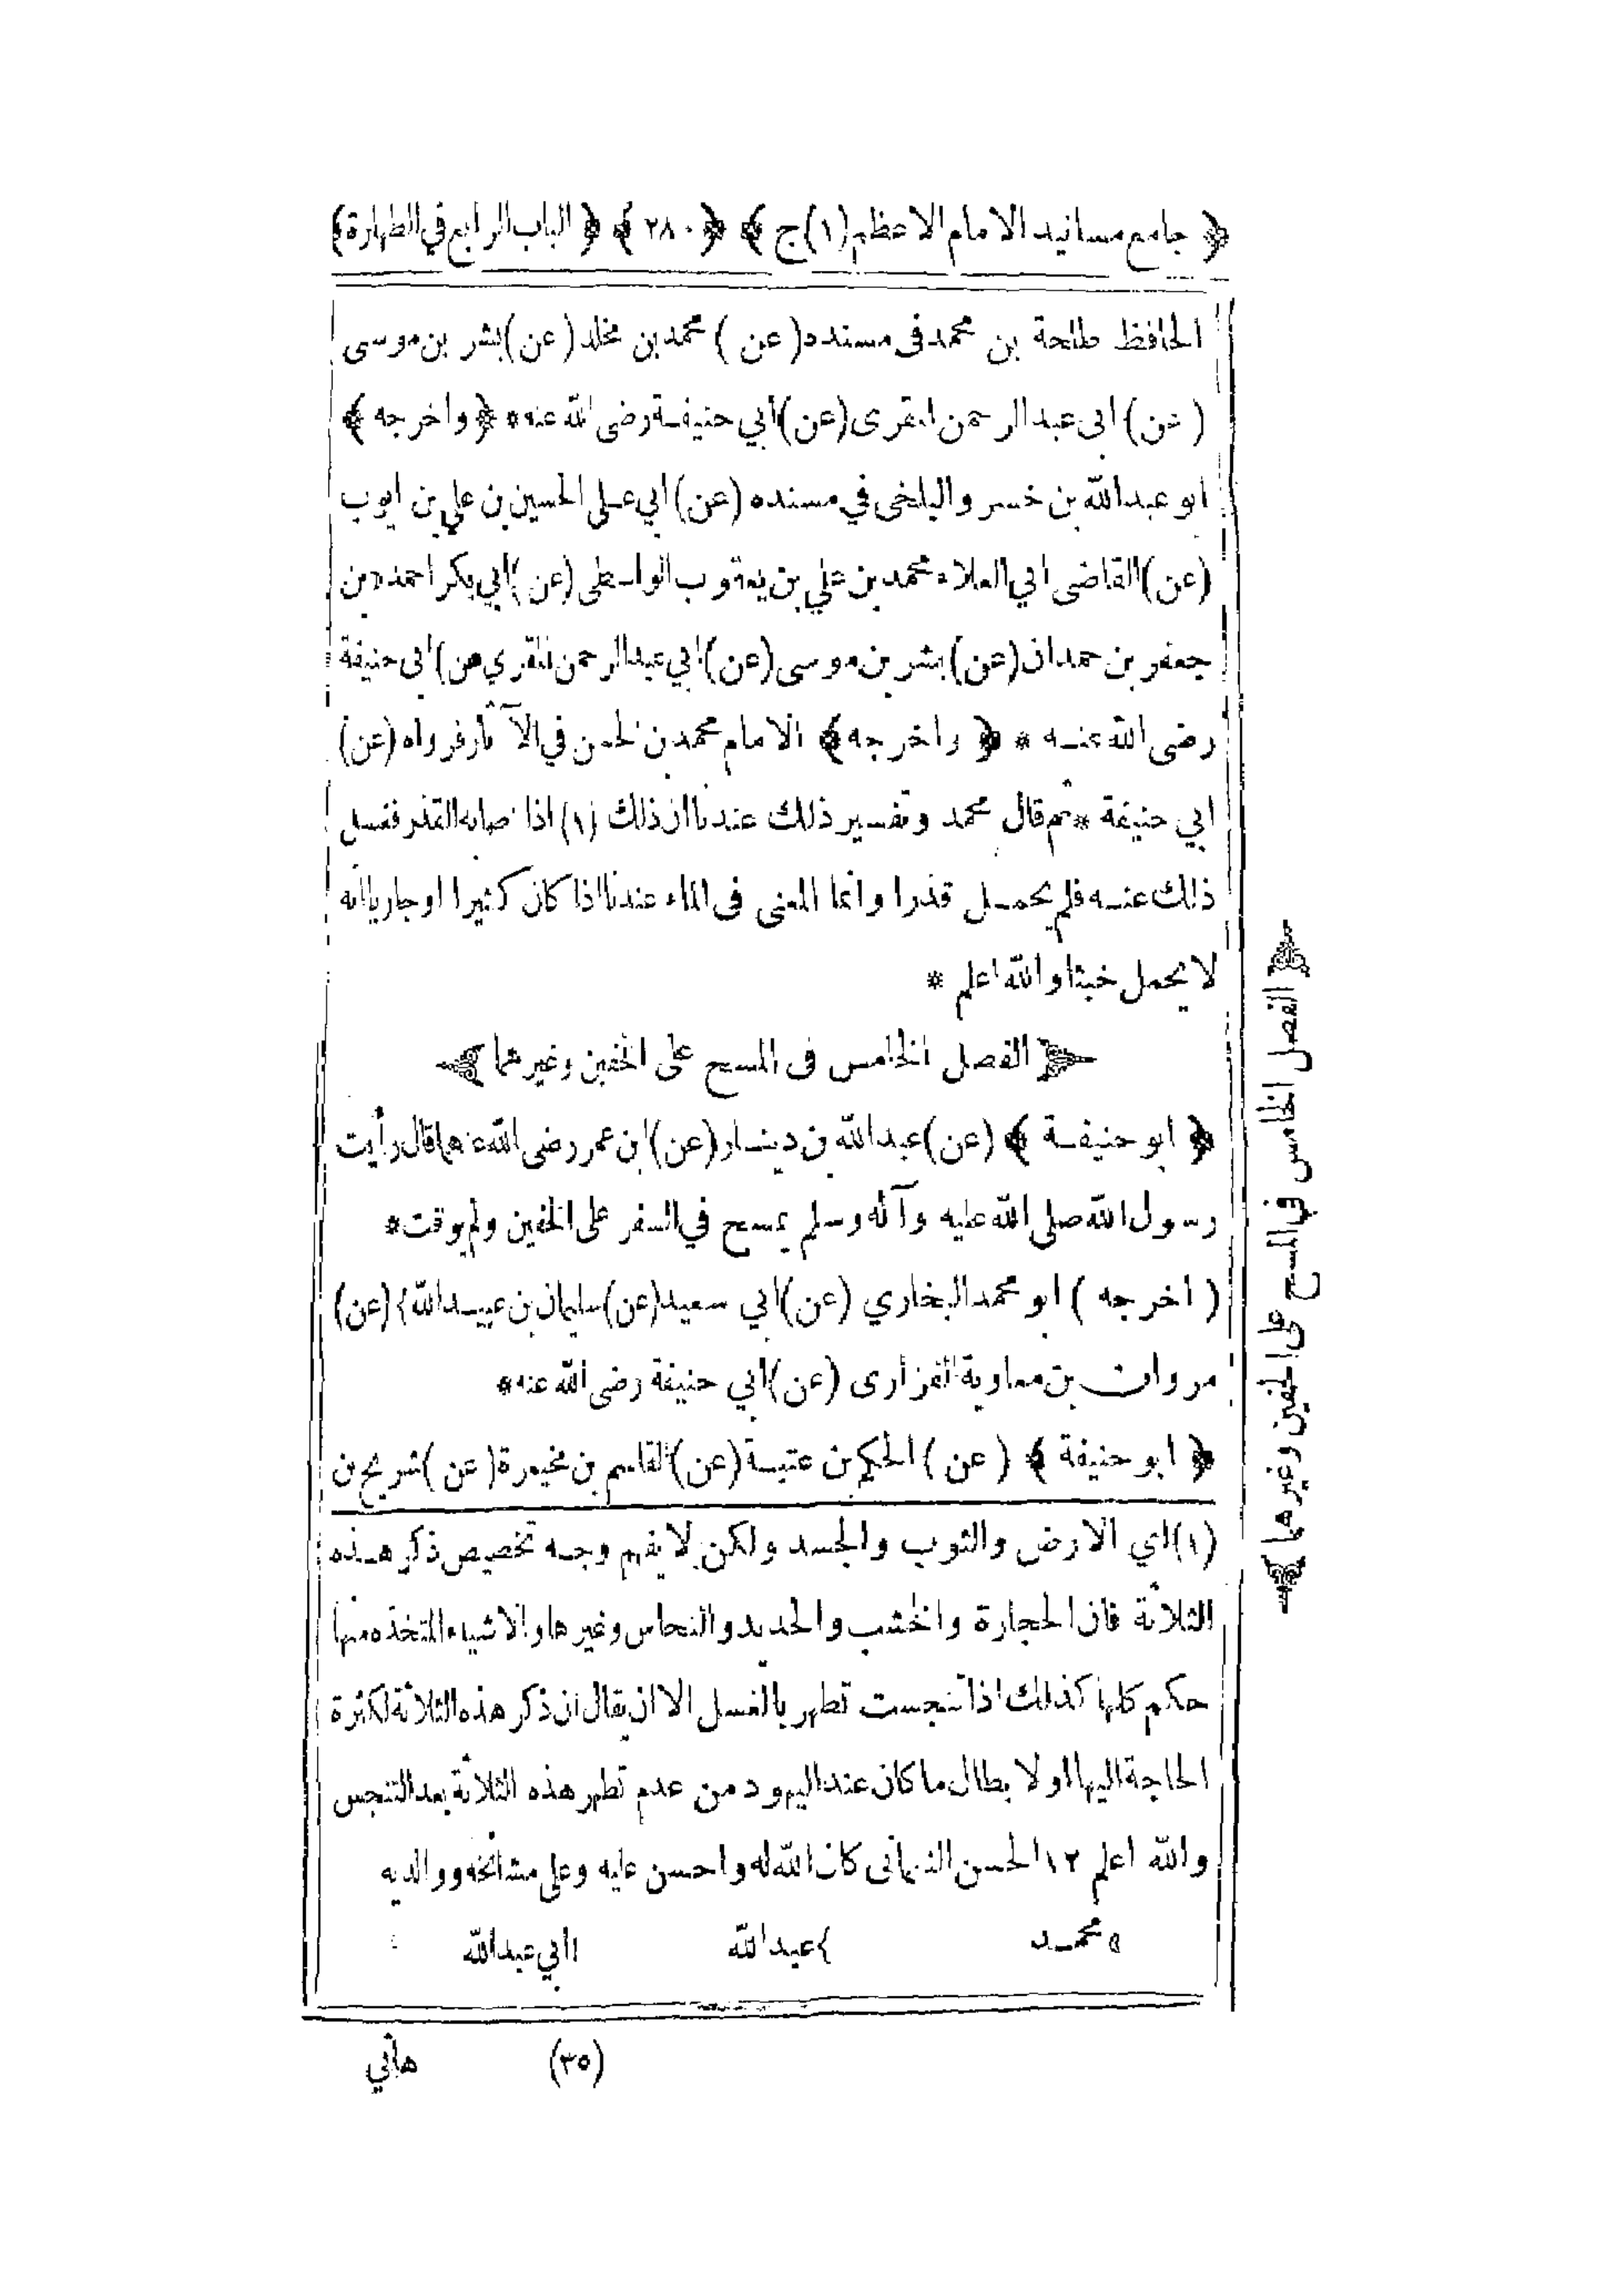 ﴿ جامع مسانيد الامام الاعظم (١) ج ﴾ ﴿ ٢٨٠ ﴾ ﴿ الباب الرابع في الطهارة ﴾
الحافظ طلحة بن محمد فى مسنده ( عن ) محمد بن مخلد ( عن ) بشر بن موسى
( عن ) ابى عبد الرحمن المقرى ( عن ) ابي حنيفة رضى الله عنه * ﴿ واخرجه ﴾
ابو عبد الله بن خسرو البلخى في مسنده ( عن ) ابي على الحسين بن علي بن ايوب
( عن ) القاضى ابي العلاء محمد بن علي بن يعقوب الواسطى ( عن ) ابي بكر احمد بن
جعفر بن حمدان ( عن ) بشر بن موسى ( عن ) ابي عبد الرحمن المقري ( عن ) ابى حنيفة
رضى الله عنه * ﴿ واخرجه ﴾ الامام محمد بن الحسن في الآثار فرواه ( عن )
ابي حنيفة * ثم قال محمد وتفسير ذلك عندنا ان ذلك (١) اذا اصابه القذر فغسل
ذلك عنه فلم يحمل قذرا وانما المعنى فى الماء عندنا اذا كان كثيرا او جاريا انه
لا يحمل خبثا والله اعلم *
﴿ الفصل الخامس فى المسح على الخفين وغيرهما ﴾
﴿ ابو حنيفة ﴾ ( عن ) عبد الله بن دينار ( عن ) ابن عمر رضى الله عنهما قال رأيت
رسول الله صلى الله عليه وآله وسلم يمسح في السفر على الخفين ولم يوقت *
( اخرجه ) ابو محمد البخاري ( عن ) ابي سعيد ( عن ) سليمان بن عبيد الله } ( عن )
مروان بن معاوية الفزارى ( عن ) ابي حنيفة رضى الله عنه *
﴿ ابو حنيفة ﴾ ( عن ) الحكم بن عتيبة ( عن ) القاسم بن مخيمرة ( عن ) شريح بن
(١) اي الارض والثوب والجسد ولكن لا يفهم وجه تخصيص ذكر هذه
الثلاثة فان الحجارة والخشب والحديد والنحاس وغيرها والاشياء المتخذه منها
حكم كلها كذلك اذا تنجست تطهر بالغسل الا ان يقال ان ذكر هذه الثلاثة لكثرة
الحاجة اليها اولا بطال ما كان عند اليهود من عدم تطهر هذه الثلاثة بعد التنجس
والله اعلم ١٢ الحسن النعمانى كان الله له واحسن عليه وعلى مشائخه ووالديه
محمد } عبد الله ابي عبد الله
(٣٥) هاني
﴿ الفصل الخامس في المسح على الخفين وغيرهما ﴾